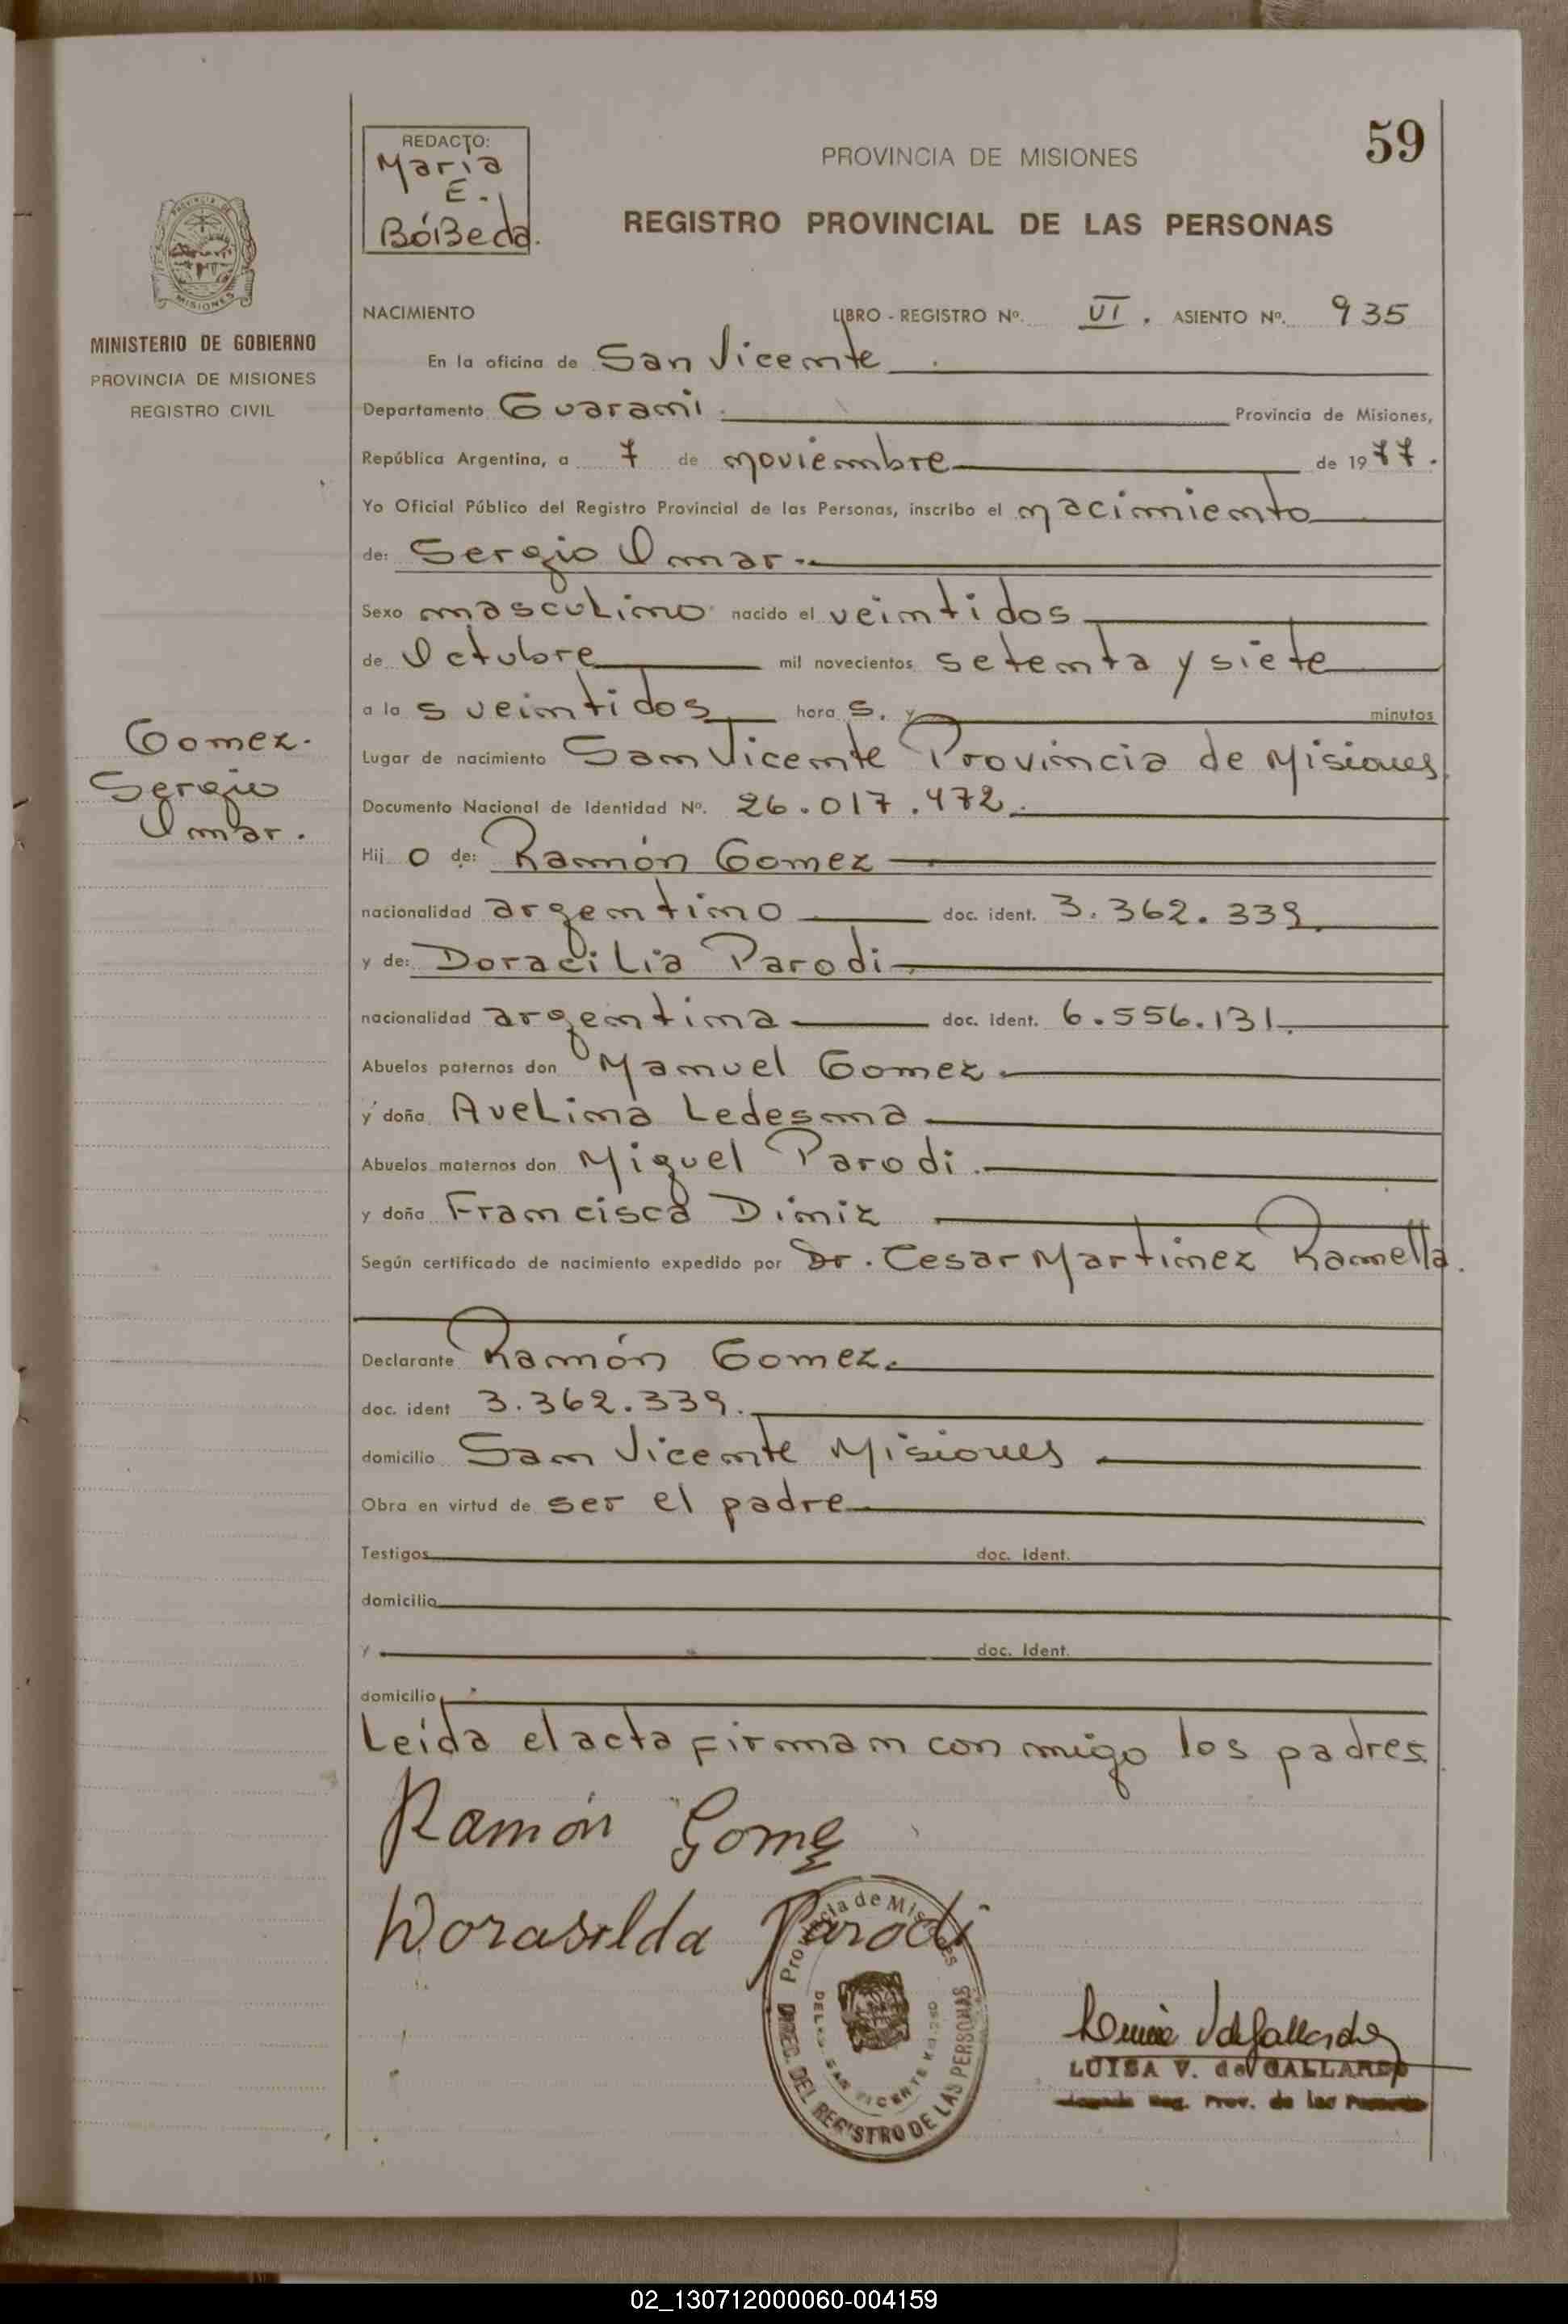 59
REDACTO:
Maria
E.
BóBeda.
PROVINCIA DE MISIONES
REGISTRO PROVINCIAL DE LAS PERSONAS
MISIONES
MINISTERIO DE GOBIERNO
PROVINCIA DE MISIONES
REGISTRO CIVIL
NACIMIENTO LIBRO - REGISTRO Nº. VI. ASIENTO Nº. 935
En la oficina de San Vicente.
Departamento Guarani. Provincia de Misiones,
República Argentina, a 7 de noviembre de 1977.
Yo Oficial Público del Registro Provincial de las Personas, inscribo el nacimiento
de: Sergio Omar.
Sexo masculino nacido el veintidos
de Octubre mil novecientos setenta y siete
a la s veintidos hora s. y minutos
Lugar de nacimiento San Vicente Provincia de Misiones
Gomez.
Sergio
Omar.
Documento Nacional de Identidad Nº. 26.017.472.
Hij o de: Ramón Gomez
nacionalidad argentino doc. ident. 3.362.339.
y de: Doracilia Parodi
nacionalidad argentina doc. ident. 6.556.131.
Abuelos paternos don Manuel Gomez.
y doña Avelina Ledesma
Abuelos maternos don Miguel Parodi.
y doña Francisca Diniz
Según certificado de nacimiento expedido por Dr. Cesar Martinez Ramella.
Declarante Ramón Gomez.
doc. ident 3.362.339.
domicilio San Vicente Misiones
Obra en virtud de ser el padre
Testigos doc. ident.
domicilio
y doc. ident.
domicilio
Leída el acta firman con migo los padres.
Ramón Gomez
Dorasilda Parodi
Provincia de Misiones
DIREC. DEL REGISTRO DE LAS PERSONAS
SAN VICENTE
LUISA V. de GALLARDO
Reg. Prov. de las Personas
02_130712000060-004159